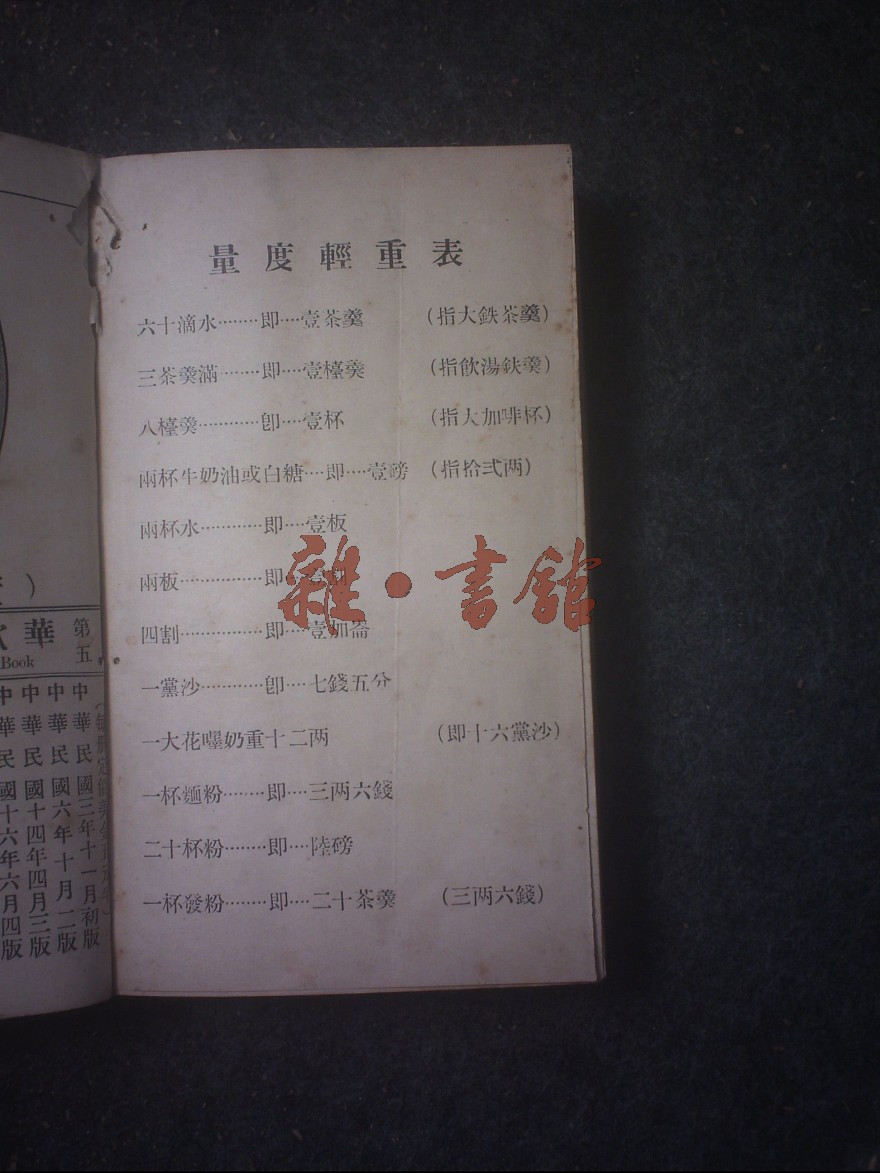 量度輕重表
六十滴水········即····壹茶羹 (指大鉄茶羹)
三茶羹滿·······即····壹檯羹 (指飲湯鈇羹)
八檯羹············即····壹杯 (指大加啡杯)
兩杯牛奶油或白糖····即····壹磅 (指拾弍两)
兩杯水············即····壹板
兩板················即····壹割
四割················即····壹加崙
一黨沙············即····七錢五分
一大花嚜奶重十二两 (即十六黨沙)
一杯麵粉········即····三两六錢
二十杯粉········即····陸磅
一杯發粉········即····二十茶羹 (三两六錢)
雜·書舘
第五
華
Book
中華民國三年十一月初版
中華民國六年十月二版
中華民國十四年四月三版
中華民國十六年六月四版